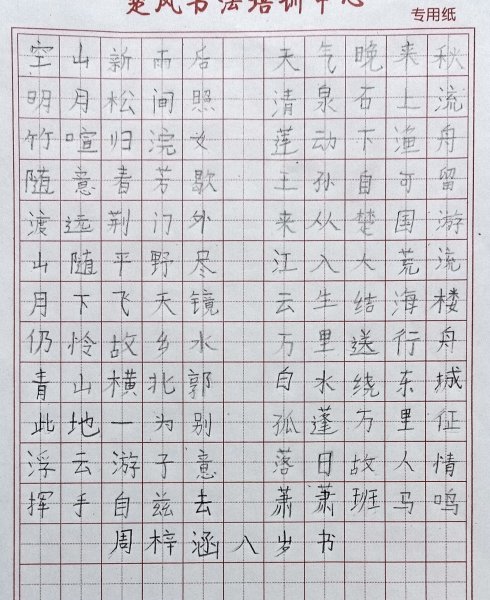 楚风书法培训中心
专用纸
空山新雨后 天气晚来秋
明月松间照 清泉石上流
竹喧归浣女 莲动下渔舟
随意春芳歇 王孙自可留
渡远荆门外 来从楚国游
山随平野尽 江入大荒流
月下飞天镜 云生结海楼
仍怜故乡水 万里送行舟
青山横北郭 白水绕东城
此地一为别 孤蓬万里征
浮云游子意 落日故人情
挥手自兹去 萧萧班马鸣
周梓涵 八岁书